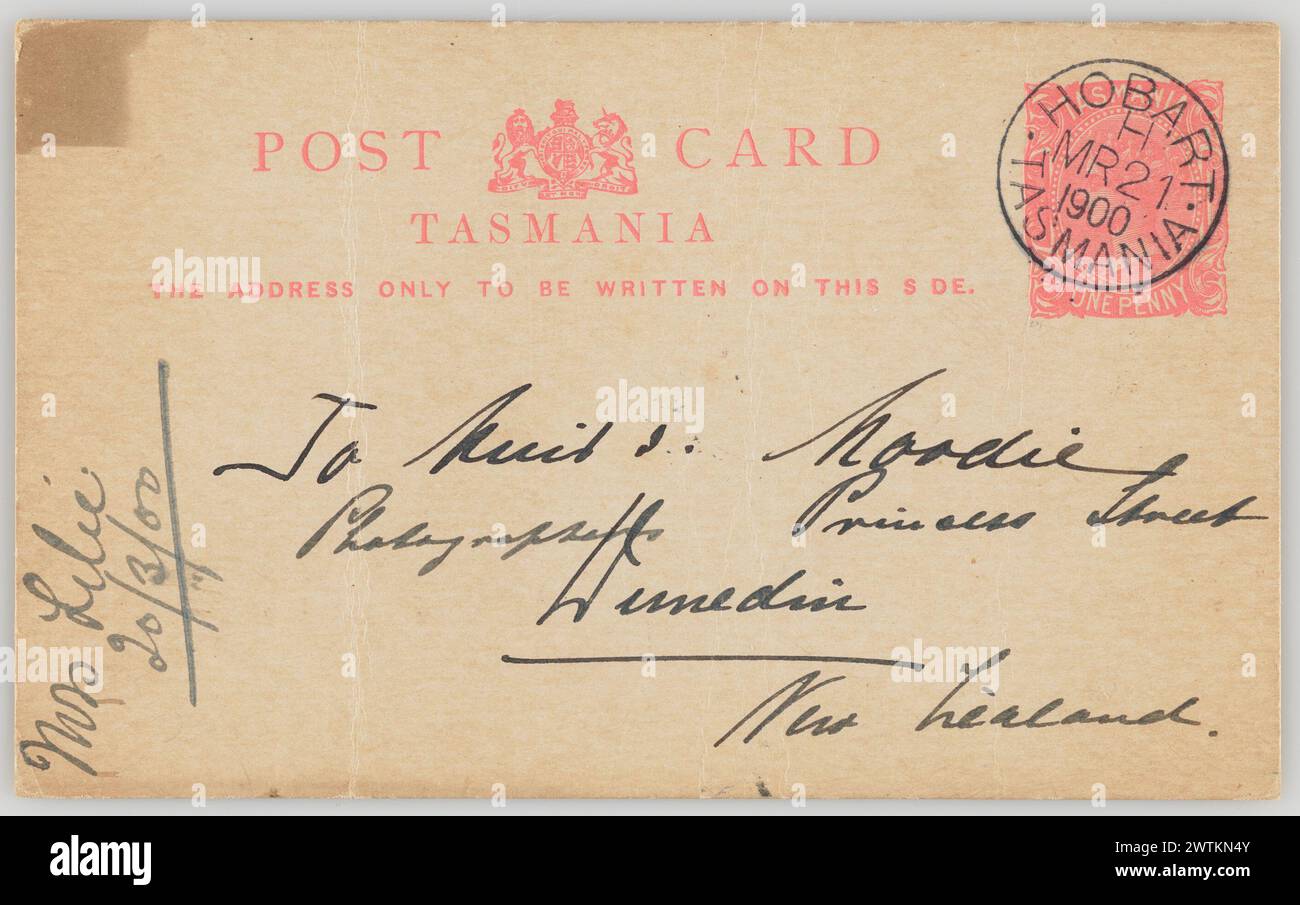 POST CARD
TASMANIA
THE ADDRESS ONLY TO BE WRITTEN ON THIS S DE.
HOBART
H
MR 21
1900
TASMANIA
SMANIA
ONE PENNY
To Muir & Moodie
Photographers Princess Street
Dunedin
New Zealand.
Mrs Lilie
20/3/00
alamy
Image ID: 2WTKN4Y
www.alamy.com